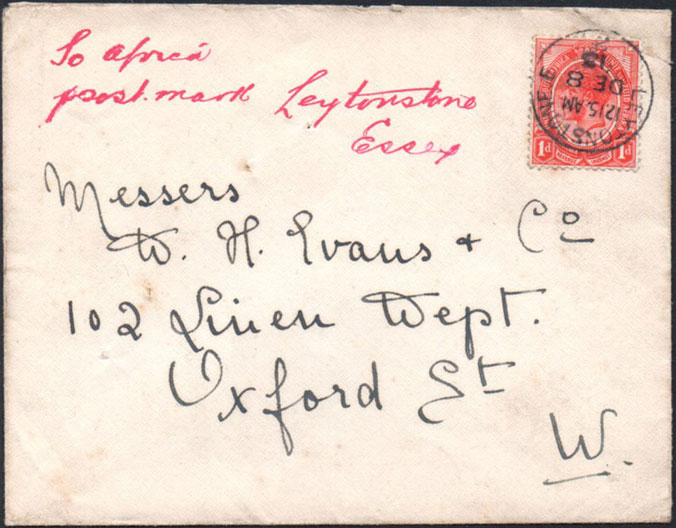 So Africa
post.mark Leytonstone
Essex
LEYTONSTONE E
12/15.AM
DE 8
13
1d 1d
Messers
W. H. Evans + Co
102 Linen Dept.
Oxford St
W.